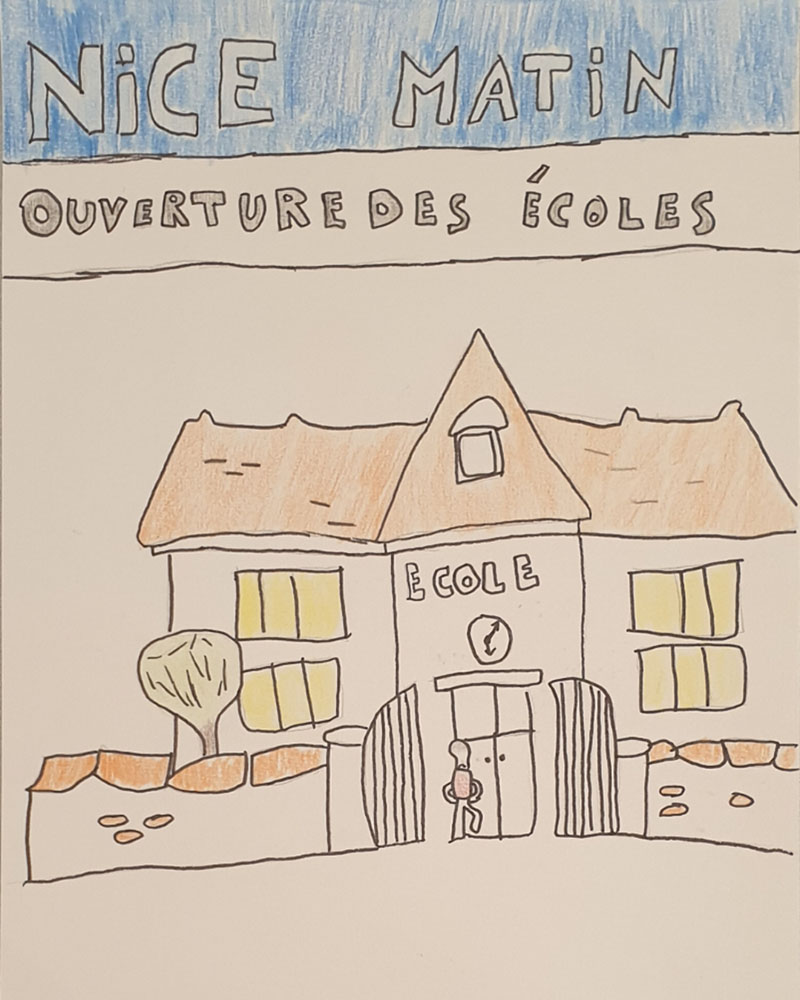 NiCE MATiN
OUVERTURE DES ÉCOLES
ECOLE